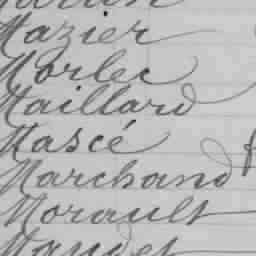 Mazier
Morlec
Maillard
Mascé
Marchand
Morault